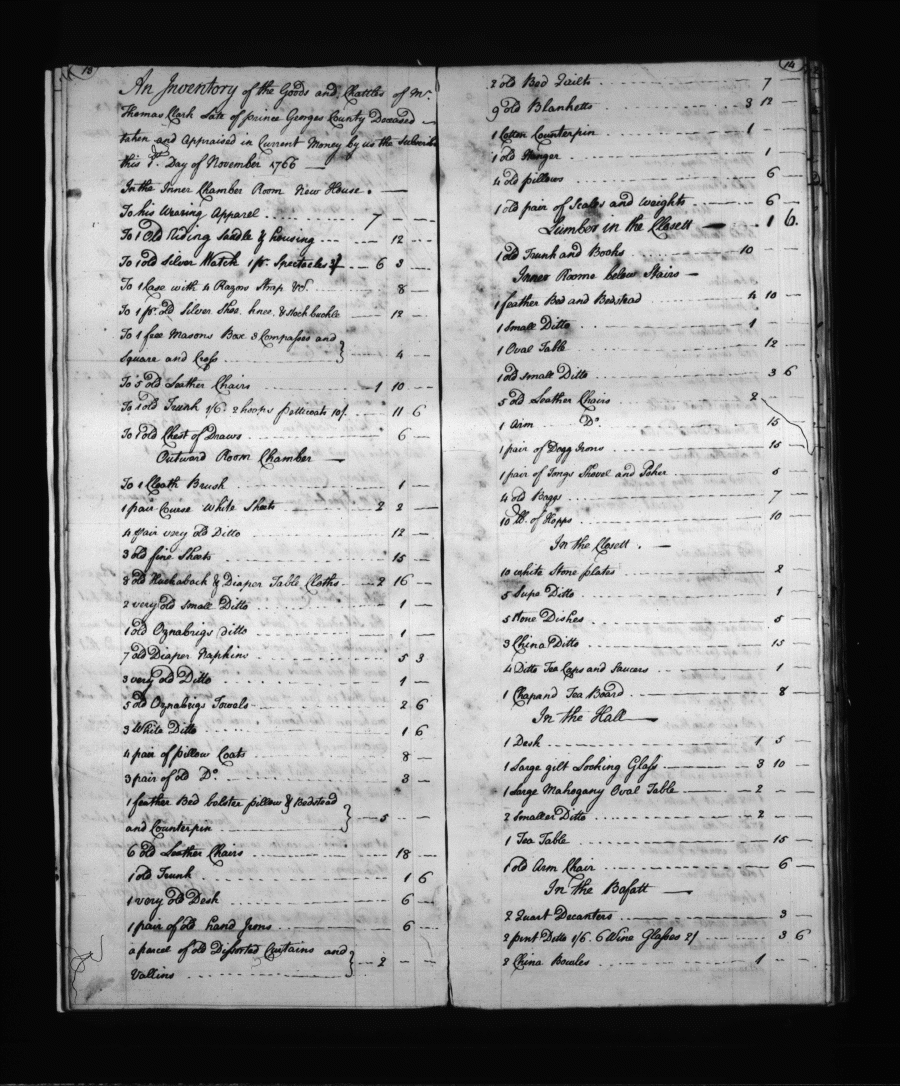 13
An Inventory of the Goods and Chattles of Mr.
Thomas Clark Late of prince Georges County Deceased —
taken and Appraised in Current Money by us the Subscribers
this Day of November 1766 —
In the Inner Chamber Room New House. —
To his Wearing Apparel 7 — —
To 1 Old Riding Saddle & housing 12 —
To 1 old Silver Watch 1 pr. Spectacles 3/ 6 3 —
To 1 Case with 4 Razors Strap &c. 8 —
To 1 pr. old Silver Shoe, knee, & Stock buckle 12 —
To 1 free Masons Box 3 Compasses and
Square and Cross 4 —
To 5 old Leather Chairs 1 10 —
To 1 old Trunk 1/6. 2 hoops petticoats 10/. 11 6
To 1 old Chest of Draws 6 —
Outward Room Chamber —
To 1 Cloath Brush 1 —
1 pair Course White Sheets 2 2 —
4 pair very old Ditto 12 —
3 old fine Sheets 15 —
8 old Huckaback & Diaper Table Cloths 2 16 —
2 very old small Ditto 1 —
1 old Oznabrigs ditto 1 —
7 old Diaper Napkins 5 3
3 very old Ditto 1 —
5 old Oznabrigs Towals 2 6
3 White Ditto 1 6
4 pair of pillow Coats 8 —
3 pair of old Do. 3 —
1 feather Bed bolster pillow & Bedstead
and Counterpin 5 — —
6 old Leather Chairs 18 —
1 old Trunk 1 6
1 very old Desk 6 —
1 pair of old hand Irons 6 —
a parcel of old Dissorted Curtains and
Vallins 2 — —
14
2 old Bed Quilts 7 —
9 old Blanketts 3 12 —
1 Cotton Counterpin 1 —
1 old Hanger 1 —
4 old pillows 6 —
1 old pair of Scales and Weights 6 —
Lumber in the Closett — 1 6
1 old Trunk and Books 10 —
Inner Roome below Stairs —
1 feather Bed and Bedstead 4 10 —
1 Small Ditto 1 —
1 Oval Table 12 —
1 old small Ditto 3 6
5 old Leather Chairs 2
1 Arm Do. 15 —
1 pair of Dogg Irons 15 —
1 pair of Tongs Shovel and Poker 5 —
4 old Baggs 7 —
10 lb. of Hopps 10 —
In the Closett. —
10 white Stone plates 2 —
5 Supe Ditto 1 —
5 Stone Dishes 5 —
3 China Ditto 15 —
4 Ditto Tea Cups and Saucers 1 —
1 Tea Board 8 —
In the Hall —
1 Desk 1 5 —
1 Large gilt Looking Glass 3 10 —
1 Large Mahogany Oval Table 2 — —
2 Smaller Ditto 2 — —
1 Tea Table 15 —
1 old Arm Chair 6 —
In the Bofatt —
2 Quart Decanters 3 —
2 pint Ditto 1/6. 6 Wine Glasses 2/ 3 6
2 China Bowles 1 — —